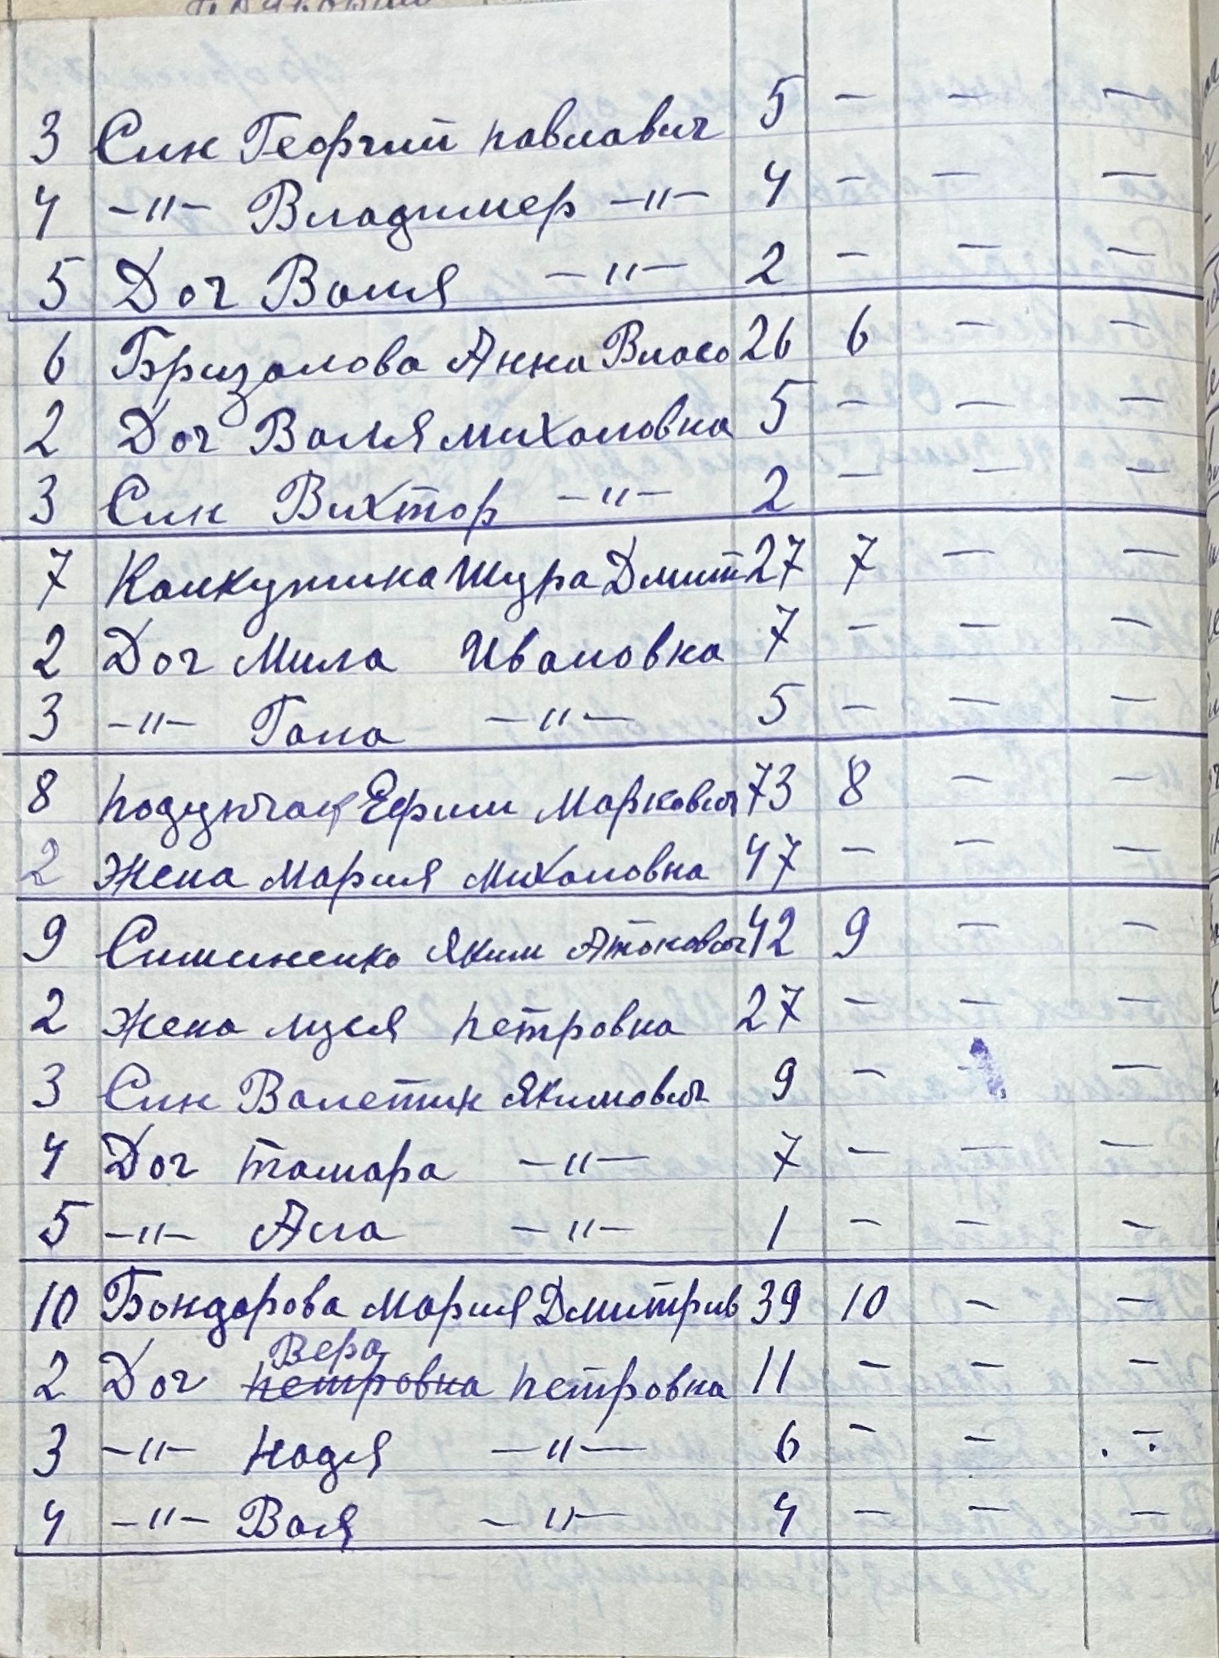 3 Син Георгий павлавич 5 – – –
4 –"– Владимер –"– 4 – – –
5 Доч Валя –"– 2 – – –
6 Бризалова Анна Власо 26 6 – –
2 Доч Валя михаловна 5 – – –
3 Син Виктор –"– 2 – – –
7 Калкутина Шура Дмит 27 7 – –
2 Доч Мила Ивановна 7 – – –
3 –"– Гала –"– 5 – – –
8 Ефим Маркович 73 8 – –
2 Жена Мария Михаловна 47 – – –
9 Симиненко Яким 42 9 – –
2 Жена Муся петровна 27 – – –
3 Син Валетин Якимович 9 – – –
4 Доч тамара –"– 7 – – –
5 –"– Ала –"– 1 – – –
10 Бондарова Мария Дмитрив 39 10 – –
Вера
2 Доч петровна петровна 11 – – –
3 –"– Надя –"– 6 – – –
4 –"– Валя –"– 4 – – –